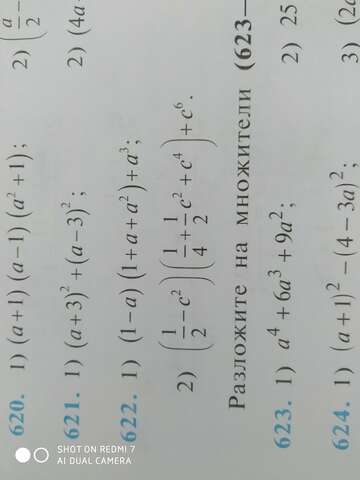 2) (a/2 –
620. 1) (a+1)(a−1)(a²+1); 2) (4a
621. 1) (a+3)²+(a−3)²;
622. 1) (1−a)(1+a+a²)+a³;
2) (1/2−c²)(1/4+1/2c²+c⁴)+c⁶.
Разложите на множители (623—
623. 1) a⁴+6a³+9a²; 2) 25
624. 1) (a+1)²−(4−3a)²; 3) (2a
SHOT ON REDMI 7
AI DUAL CAMERA